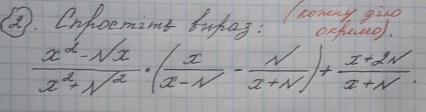 2. Спростіть вираз: (кожну дію окремо).
(x² - Nx)/(x² + N²) · (x/(x - N) - N/(x + N)) + (x + 2N)/(x + N).